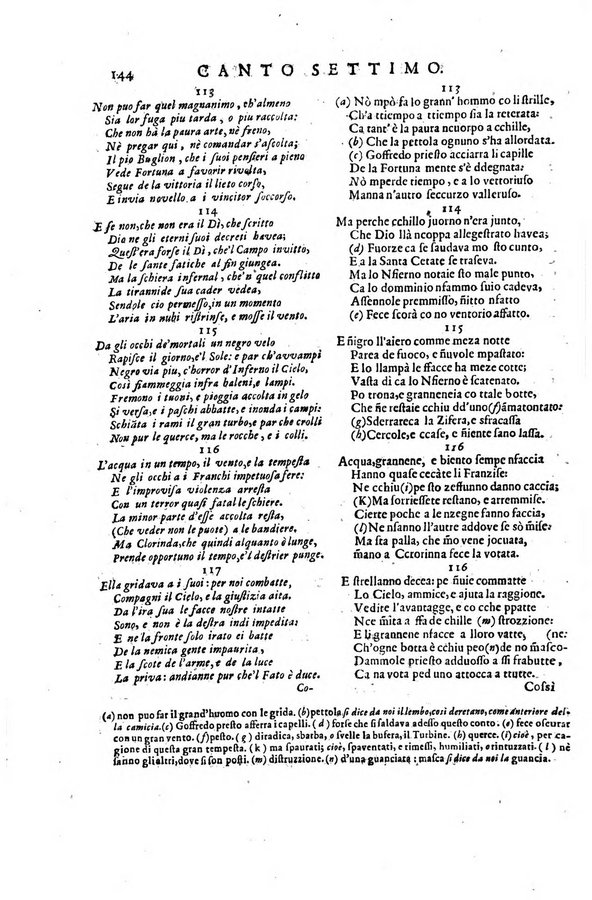 144 CANTO SETTIMO.
113
Non puo far quel magnanimo, ch'almeno
Sia lor fuga piu tarda, o piu raccolta:
Che non hà la paura arte, nè freno,
Nè pregar qui, nè comandar s'ascolta;
Il pio Buglion, che i suoi pensieri a pieno
Vede Fortuna a favorir rivolta,
Segue de la vittoria il lieto corso,
E invia novello a i vincitor soccorso.
114
E se non, che non era il Dì, che scritto
Dio ne gli eterni suoi decreti havea;
Quest'era forse il dì, che'l Campo invitto,
De le sante fatiche al fin giungea.
Ma la schiera infernal, che'n quel conflitto
La tirannide sua cader vedea,
Sendole cio permesso, in un momento
L'aria in nubi ristrinse, e mosse il vento.
115
Da gli occhi de' mortali un negro velo
Rapisce il giorno, e'l Sole: e par ch'avvampi
Negro via piu, c'horror d'Inferno il Cielo,
Così fiammeggia infra baleni, e lampi.
Fremono i tuoni, e pioggia accolta in gelo
Si versa, e i paschi abbatte, e inonda i campi:
Schiāta i rami il gran turbo, e par che crolli
Non pur le querce, ma le rocche, e i colli.
116
L'acqua in un tempo, il vento, e la tempesta
Ne gli occhi a i Franchi impetuosa fere:
E l'improvisa violenza arresta
Con un terror quasi fatal le schiere.
La minor parte d'esse accolta resta,
(Che veder non le puote) a le bandiere.
Ma Clorinda, che quindi alquanto è lunge,
Prende opportuno il tempo, e'l destrier punge.
117
Ella gridava a i suoi: per noi combatte,
Compagni il Cielo, e la giustizia aita.
Da l'ira sua le facce nostre intatte
Sono, e non è la destra indi impedita:
E ne la fronte solo irato ei batte
De la nemica gente impaurita,
E la scote de l'arme, e de la luce
La priva: andianne pur che'l Fato è duce.
Co-
113
(a) Nò mpò fa lo grann' hommo co li strille,
Ch'a ttiempo a ttiempo sia la reterata:
Ca tant' è la paura ncuorpo a cchille,
(b) Che la pettola ognuno s'ha allordata.
(c) Goffredo priesto acciarra li capille
De la Fortuna mente s'è ddegnata:
Nò mperde tiempo, e a lo vettoriuso
Manna n'autro seccurzo valleruso.
114
Ma perche cchillo juorno n'era junto,
Che Dio llà ncoppa allegestrato havea;
(d) Fuorze ca se saudava mo sto cunto,
E a la Santa Cetate se traseva.
Ma lo Nfierno notaie sto male punto,
Ca lo domminio nfammo suio cadeva,
Assennole premmisso, n̄itto nfatto
(e) Fece scorà co no ventorio affatto.
115
E n̄igro ll'aiero comme meza notte
Parea de fuoco, e n̄uvole mpastato:
E lo llampà le ffacce ha meze cotte;
Vasta dì ca lo Nfierno è scatenato.
Po trona, e grannenèa co ttale botte,
Che n̄e restaie cchiu dd'uno (f) āmatontato:
(g) Sderrareca la Zifera, e sfracassa
(h) Cercole, e ccase, e n̄iente san̄o lassa.
116
Acqua, grannene, e biento sempe nfaccia
Hanno quase cecàte li Franzise:
Ne cchiu (i) pe sto zeffunno danno caccia;
(K) Ma sorriessete restano, e arremmise.
Cierte poche a le nzegne fanno faccia,
(l) Ne nsanno ll'autre addove se sò mise:
Ma sta palla, che m̄o venne mmano
m̄ano a Cctorinna fece la votata.
116
E strellanno decea: pe n̄uie commatte
Lo Cielo, ammice, e ajuta la raggione.
Vedire l'avantagge, e co cche ppatte
Nce mm̄ita a ffare de chille (m) strozzione:
E li grannene nfacce a lloro vatte, (ne:
Ch'ogne botta è cchiu peo (n) de no m̄asco-
Dammole priesto adduosso a sti frabutte,
Ca na vota ped uno attocca a trutte.
Cossì
(a) non puo far il grand'huomo con le grida. (b) pettola, si dice da noi il lembo, così deretano, come anteriore della camicia. (c) Goffredo presto afferra i capelli. (d) forse che si saldava adesso questo conto. (e) fece oscurar
con un gran vento. (f) pesto. (g) diradica, sbarba, o svelle la bufera, il Turbine. (h) querce. (i) cioè, per cagione di questa gran tempesta. (k) ma spaurati; cioè, spaventati, e rimessi, humiliati, o rintuzzati. (l) nè
sanno gli altri, dove si son posti. (m) distruzzione. (n) d'una guanciata: masca si dice da noi la guancia.